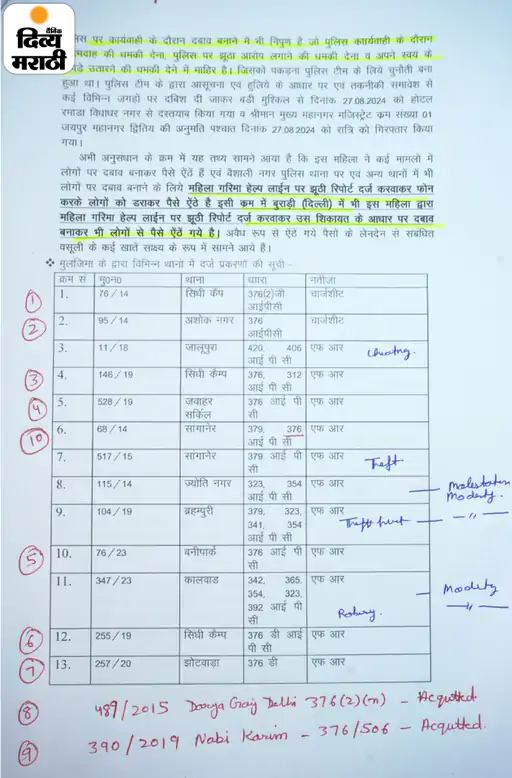 दैनिक
दिव्य
मराठी
पुलिस पर कार्यवाही के दौरान दबाव बनाने में भी निपुण है जो पुलिस कार्यवाही के दौरान
आत्मदाह की धमकी देना, पुलिस पर झूठा आरोप लगाने की धमकी देना व अपने स्वयं के
कपड़े उतारने की धमकी देने में माहिर है। जिसको पकड़ना पुलिस टीम के लिये चुनौती बना
हुआ था। पुलिस टीम के द्वारा आसूचना एवं हुलिये के आधार पर एवं तकनीकी समावेश से
कई विभिन्न जगहों पर दबिश दी जाकर बडी मुश्किल से दिनांक 27.08.2024 को होटल
रमाडा विधाधर नगर से दस्तयाब किया गया व श्रीमान मुख्य महानगर मजिस्ट्रेट क्रम संख्या 01
जयपुर महानगर द्वितिय की अनुमति पश्चात दिनांक 27.08.2024 को रात्रि को गिरफ्तार किया
गया।
अभी अनुसंधान के क्रम में यह तथ्य सामने आया है कि इस महिला ने कई मामलों में
लोगों पर दबाव बनाकर पैसे ऐंठें हैं एवं वैशाली नगर पुलिस थाना पर एवं अन्य थानों में भी
लोगों पर दबाव बनाने के लिये महिला गरिमा हेल्प लाईन पर झूठी रिपोर्ट दर्ज करवाकर फोन
करके लोगों को डराकर पैसे ऐंठे है इसी क्रम में बुराड़ी (दिल्ली) में भी इस महिला द्वारा
महिला गरिमा हेल्प लाईन पर झूठी रिपोर्ट दर्ज करवाकर उस शिकायत के आधार पर दबाव
बनाकर भी लोगों से पैसे ऐंठें गये है। अवैध रूप से ऐंठे गये पैसो के लेनदेन से संबंधित
वसूली के कई खाते साक्ष्य के रूप में सामने आये है।
❖ मुलजिमा के द्वारा विभिन्न थानों में दर्ज प्रकरणों की सूची:-
क्रम सं मु0न0 थाना धारा नतीजा
① 1. 76 / 14 सिंधी कैंप 376(2)जी आईपीसी चार्जशीट
② 2. 95 / 14 अशोक नगर 376 आईपीसी चार्जशीट
3. 11 / 18 जालूपुरा 420, 406 आई पी सी एफ आर Cheating.
③ 4. 146 / 19 सिंधी कैम्प 376, 312 आई पी सी एफ आर
④ 5. 528 / 19 जवाहर सर्किल 376 आई पी सी एफ आर
⑩ 6. 68 / 14 सांगानेर 379, 376 आई पी सी एफ आर
7. 517 / 15 सांगानेर 379 आई पी सी एफ आर Theft
8. 115 / 14 ज्योति नगर 323, 354 आई पी सी एफ आर — Molestation Modesty.
9. 104 / 19 ब्रहम्पुरी 379, 323, 341, 354 आई पी सी एफ आर Theft hurt — —〃—
⑤ 10. 76 / 23 बनीपार्क 376 आई पी सी एफ आर
11. 347 / 23 कालवाड 342, 365, 354, 323, 392 आई पी सी एफ आर Robery. — Modesty —〃—
⑥ 12. 255 / 19 सिंधी कैम्प 376 डी आई पी सी एफ आर
⑦ 13. 257 / 20 झोटवाडा 376 डी एफ आर
⑧ 489/2015 Darya Ganj Delhi 376(2)(n) — Acquitted.
⑨ 390/2019 Nabi Karim - 376/506 - Acquitted.